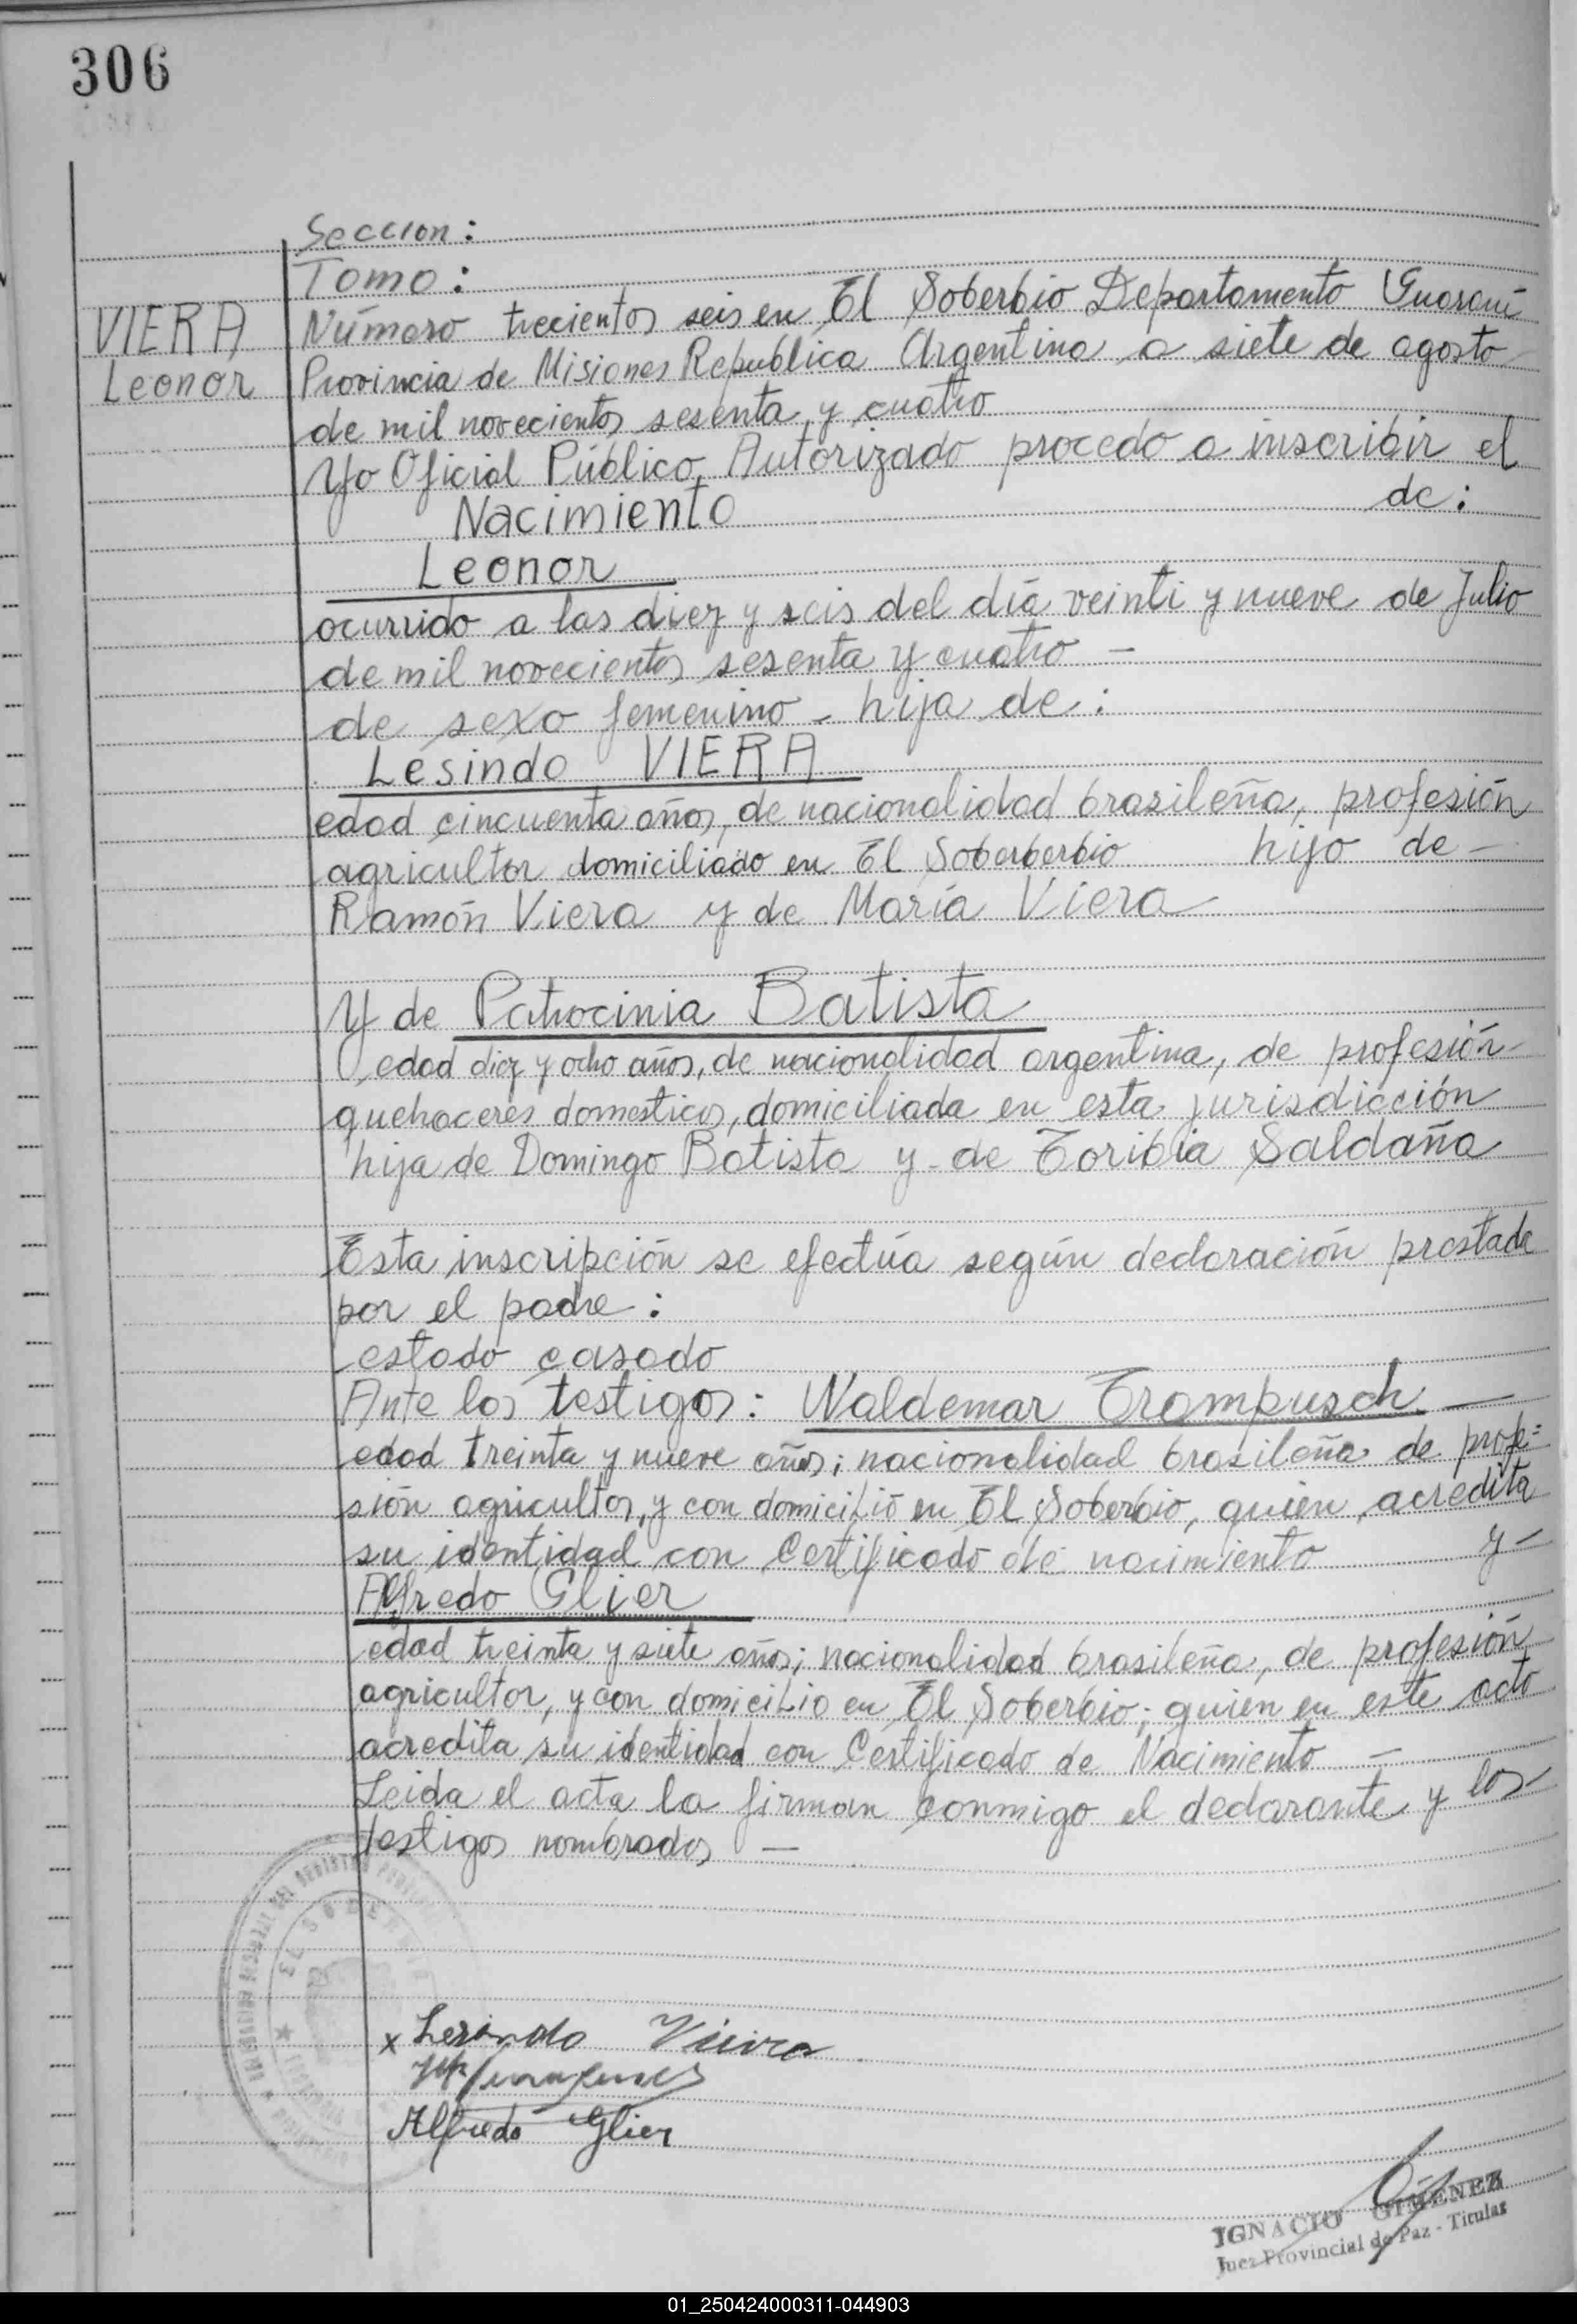 306
Seccion:
Tomo:
VIERA
Leonor
Número trecientos seis en El Soberbio Departamento Guaraní
Provincia de Misiones Republica Argentina a siete de agosto
de mil novecientos sesenta y cuatro
Yo Oficial Público Autorizado procedo a inscribir el
Nacimiento de:
Leonor
ocurrido a las diez y seis del día veinti y nueve de Julio
de mil novecientos sesenta y cuatro —
de sexo femenino - hija de:
Lesindo VIERA
edad cincuenta años, de nacionalidad brasileña, profesión
agricultor domiciliado en El Soberberbio hijo de —
Ramón Viera y de María Viera
Y de Patrocinia Batista
edad diez y ocho años, de nacionalidad argentina, de profesión
quehaceres domesticos, domiciliada en esta jurisdicción
hija de Domingo Batista y de Toribia Saldaña
Esta inscripción se efectúa según declaración prestada
por el padre:
estado casado
Ante los testigos: Waldemar Trompusch —
edad treinta y nueve años; nacionalidad brasileña de profe=
sión agricultor, y con domicilio en El Soberbio, quien acredita
su identidad con Certificado de nacimiento y —
Alfredo Glier
edad treinta y siete años; nacionalidad brasileña, de profesión
agricultor, y con domicilio en El Soberbio; quien en este acto
acredita su identidad con Certificado de Nacimiento —
Leida el acta la firman conmigo el declarante y los
testigos nombrados —
EL SOBERBIO
x Lesindo Vieira
Alfredo Glier
IGNACIO GIMENEZ
Juez Provincial de Paz - Titular
01_250424000311-044903